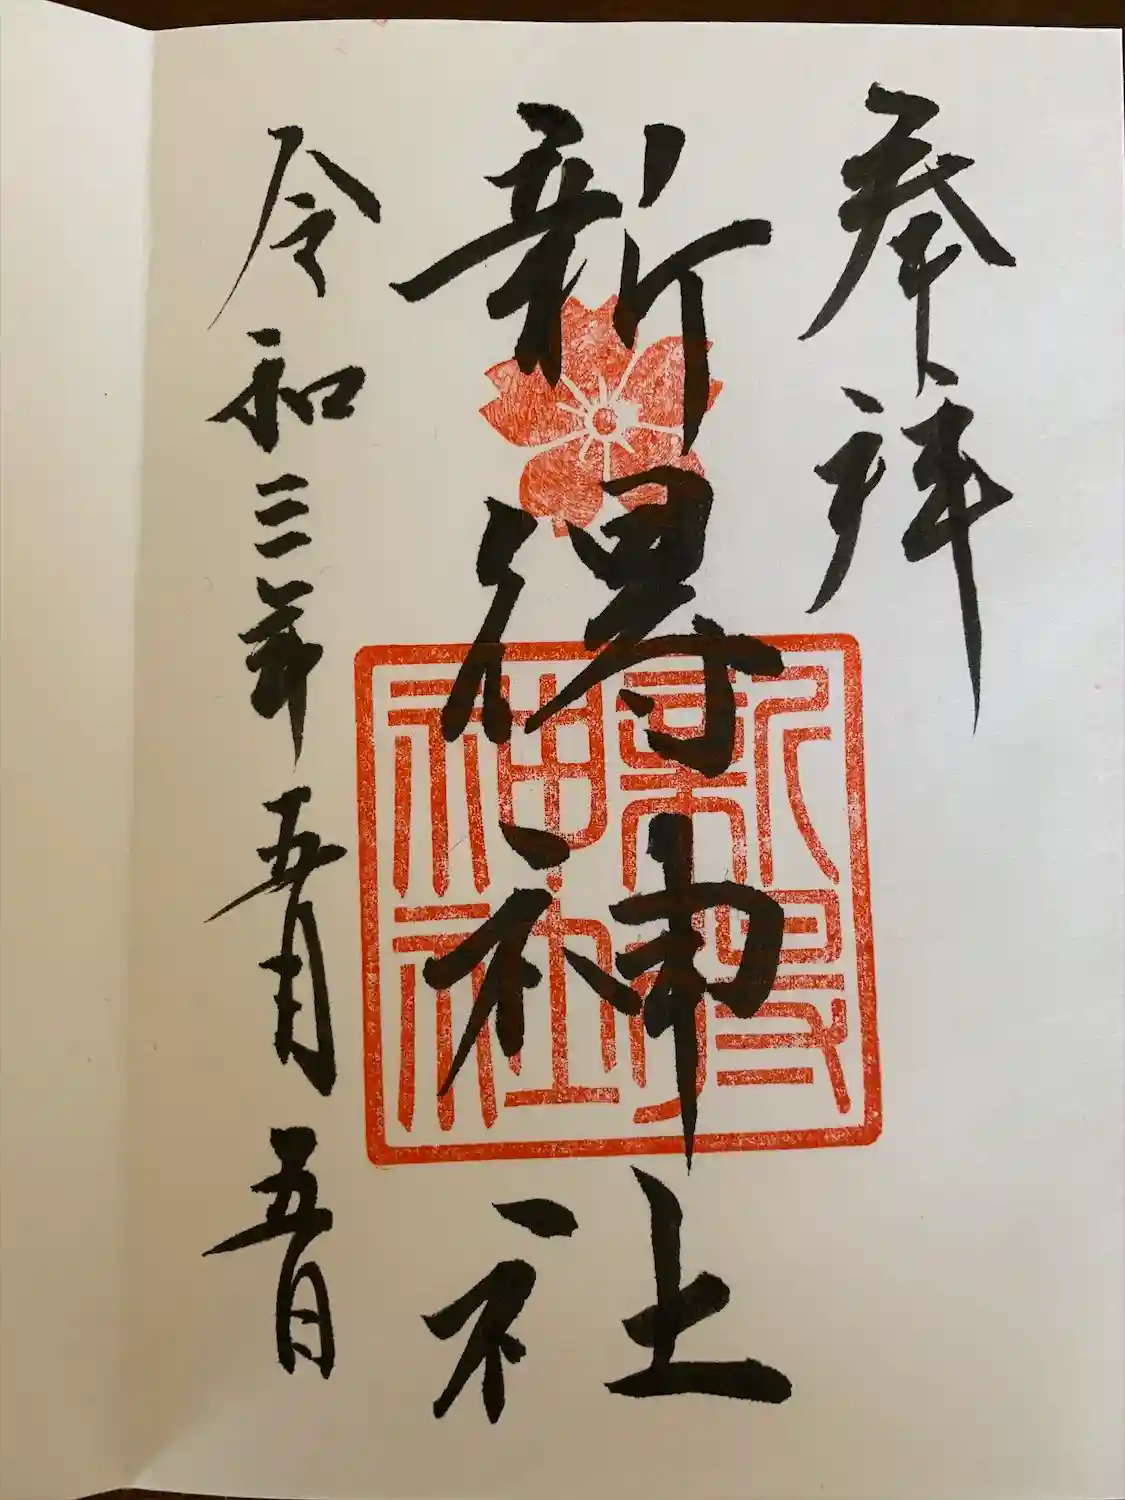 奉拝
新得神社
新得神社
令和三年五月五日